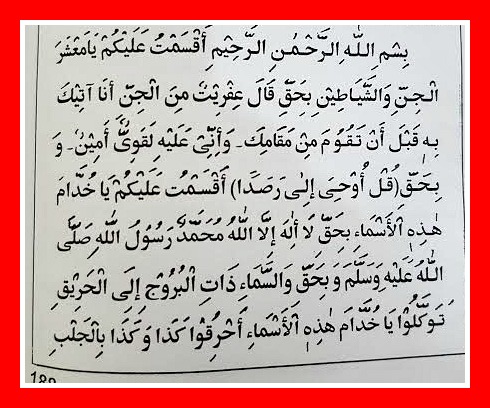 بِسْمِ اللّٰهِ الرَّحْمٰنِ الرَّحِيْمِ اَقْسَمْتُ عَلَيْكُمْ يَامَعْشَرَ
الْجِنِّ وَالشَّيَاطِيْنِ بِحَقِّ قَالَ عِفْرِيْتٌ مِنَ الْجِنِّ اَنَا آتِيْكَ
بِهٖ قَبْلَ اَنْ تَقُوْمَ مِنْ مَقَامِكَ۔ وَاِنِّىْ عَلَيْهِ لَقَوِىٌّ اَمِيْنٌ۔ وَ
بِحَقِّ (قُلْ اُوْحِىَ اِلٰى رَصَدًا) اَقْسَمْتُ عَلَيْكُمْ يَا خُدَّامَ
هٰذِهِ الْاَسْمَاءِ بِحَقِّ لَا اِلٰهَ اِلَّا اللّٰهُ مُحَمَّدٌ رَسُوْلُ اللّٰهِ صَلَّى
اللّٰهُ عَلَيْهِ وَسَلَّمَ وَ بِحَقِّ وَالسَّمَاءِ ذَاتِ الْبُرُوْجِ اِلَى الْحَرِيْقِ
تَوَكَّلُوْا يَا خُدَّامَ هٰذِهِ الْاَسْمَاءِ اَحْرِقُوْا كَذَا وَ كَذَا بِالْجَلْبِ